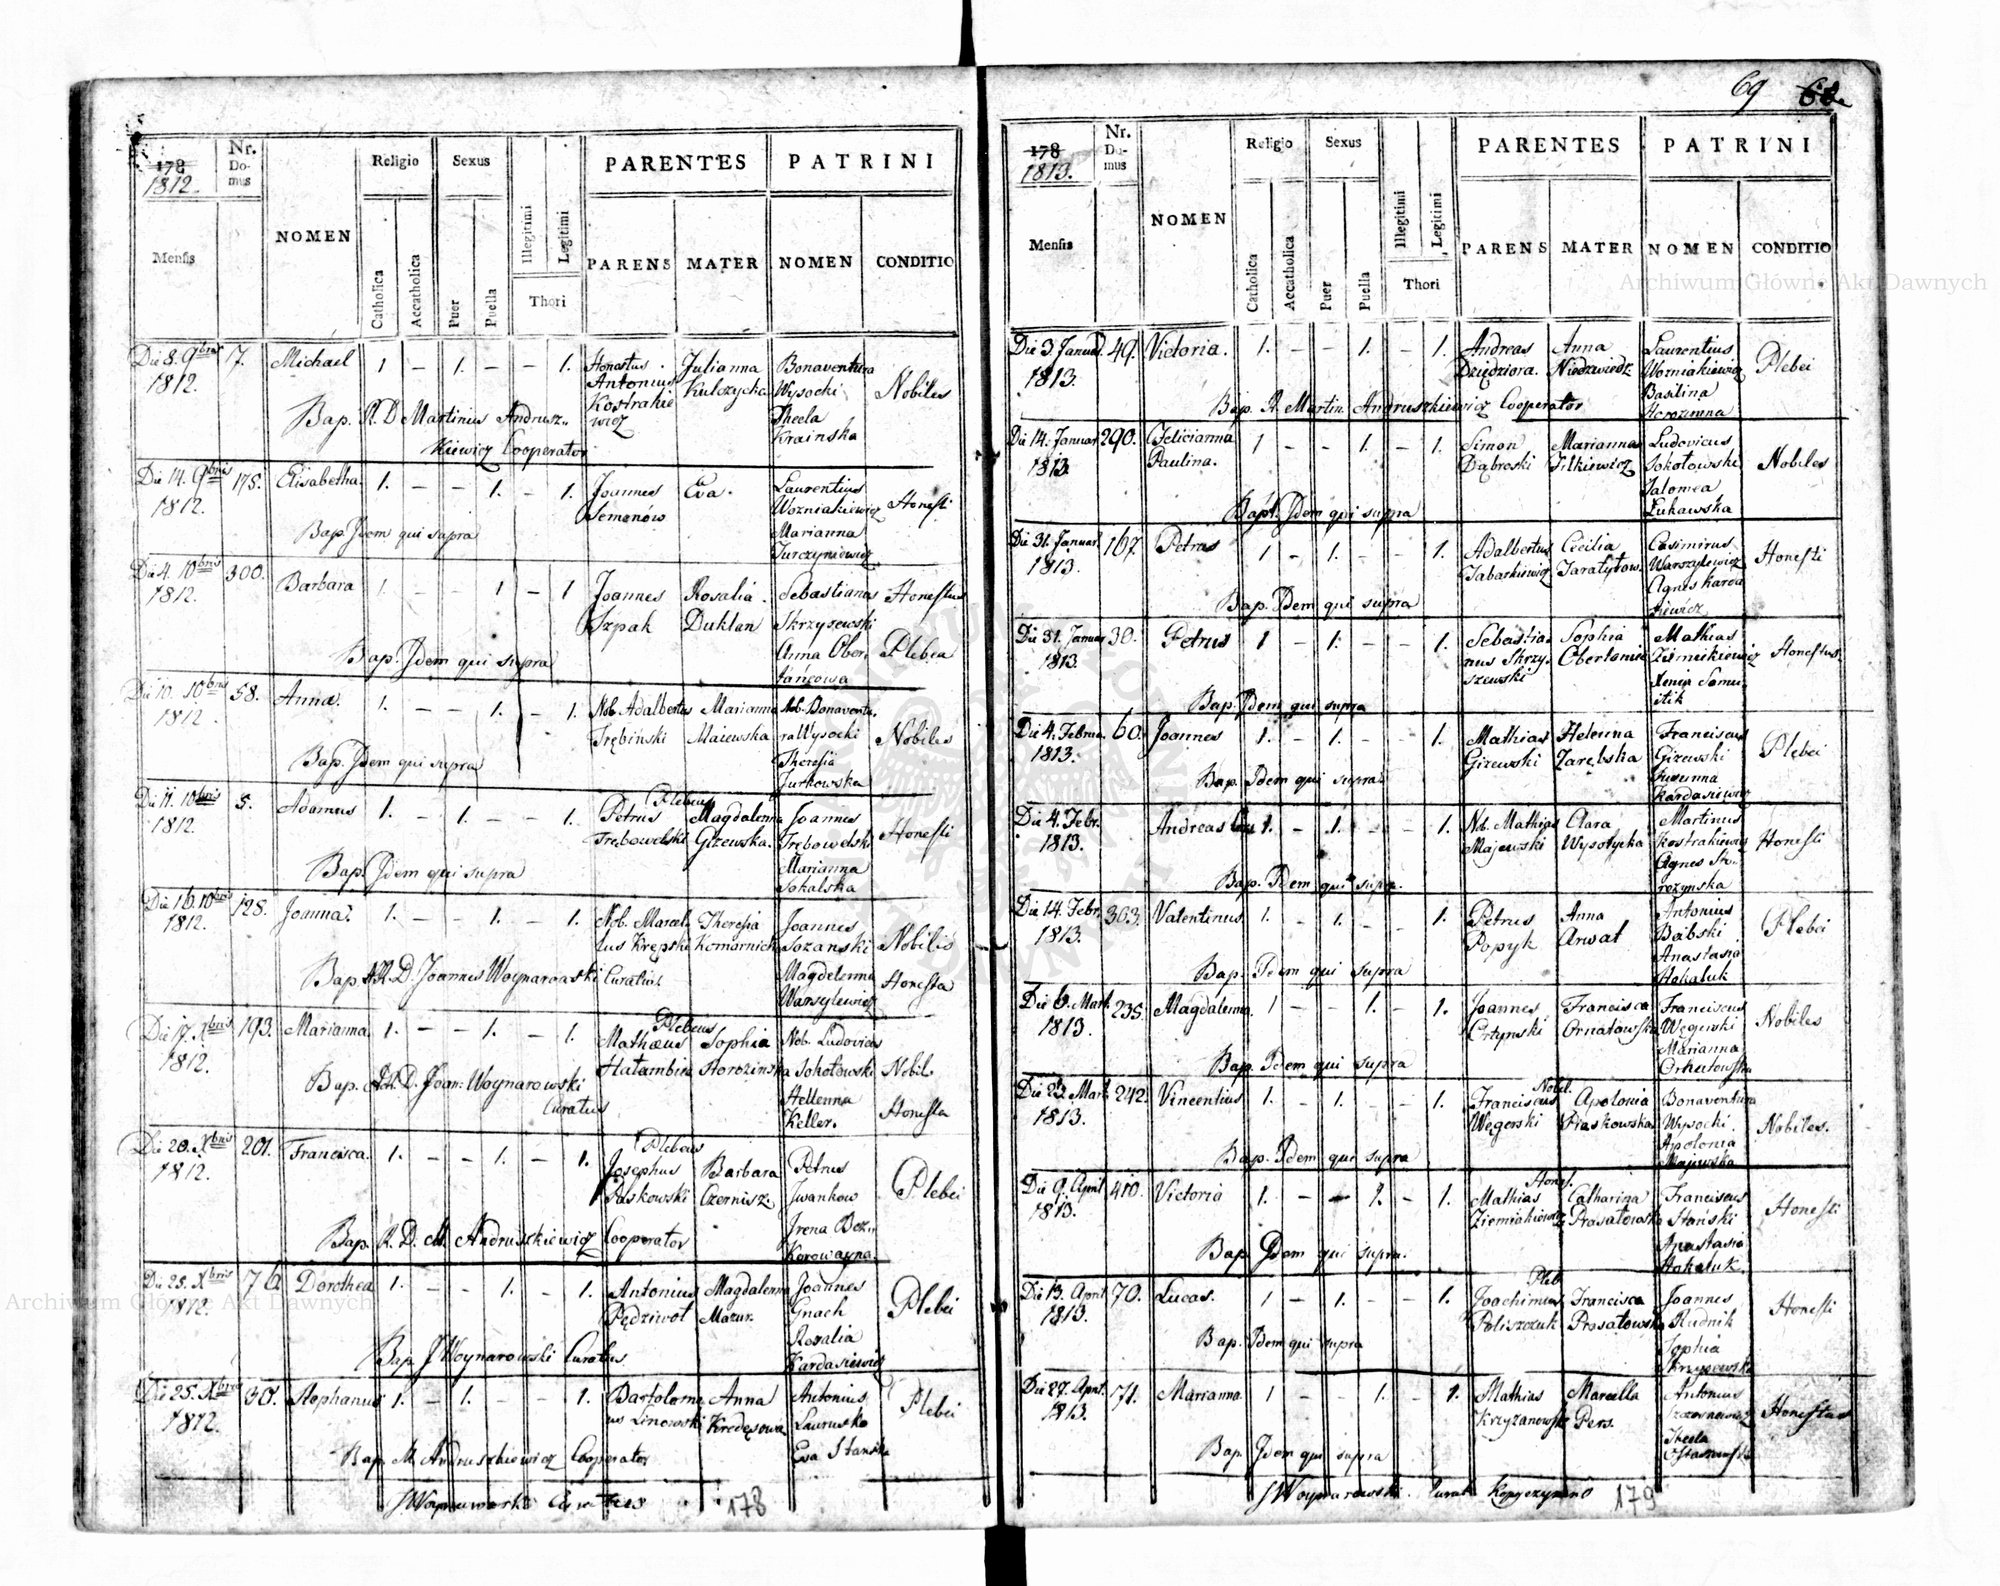 69 68.
178
1812.
Nr. Domus
Religio
Sexus
PARENTES
PATRINI
Mensis
NOMEN
Catholica
Accatholica
Puer
Puella
Illegitimi
Legitimi
Thori
PARENS
MATER
NOMEN
CONDITIO
Die 8. 9bris 7. Michael 1 – 1. – – 1. Honestus Julianna Bonaventura
1812. Antonius Kulczycka Wysocki Nobiles
Kostrakie
wicz Thecla
Bap. R. D Martinus Andrusz- Krainska
kiewicz Cooperator
Die 14. 9bris 175. Elisabetha 1. – – 1. – 1. Joannes Eva. Laurentius
1812. Semenów Wozniakiewicz Honesti
Bap. Idem qui supra Marianna
Jurczyniewicz
Die 4. 10bris 300. Barbara 1. – – 1 – 1 Joannes Rosalia Sebastianus Honestus
1812. Szpak Duklan Skrzyszewski
Bap. Idem qui supra Anna Ober- Plebea
tańcowa
Die 10. 10bris 58. Anna. 1. – – 1. – 1. Nob. Adalbertus Marianna Nob. Bonaventu-
1812. Trębinski Maiewska ra Wysocki Nobiles
Bap. Idem qui supra Theresia
Jurkowska
Die 11. 10bris 5. Adamus 1. – 1. – – 1. Plebeus
1812. Petrus Magdalenna Joannes
Trębowelski Gizewska. Trębowelski Honesti
Bap. Idem qui supra Marianna
Sokalska
Die 16. 10bris 128. Joanna. 1. – – 1. – 1. Nob. Marcel- Theresia Joannes
1812. lus Krępski Komarnicka Sozanski Nobilis
Bap. A.R.D. Joannes Woynarowski Curatus. Magdalenna Honesta
Warsylewicz
Die 17. Xbris 193. Marianna. 1. – – 1. – 1. Plebeus
1812. Mathæus Sophia Nob. Ludovicus
Hatambiec Horozinska Sokołowski Nobil.
Bap. Ad. R.D. Joan: Woynarowski Hellenna
Curatus Keller. Honesta
Die 20. Xbris 201. Francisca. 1. – – 1. – 1. Plebeus
1812. Josephus Barbara Petrus
Paskowski Czernisz Jwankow Plebei
Irena Boz-
Bap. R. D. M. Andruszkiewicz Cooperator Korowayna.
Die 25. Xbris 76. Dorothea 1. – – 1. – 1. Antonius Magdalenna Joannes
1812. Pędziwol Mazur. Gnach Plebei
Rosalia
Bap. J Woynarowski Curatus. Kardasiewicz
Die 25. Xbris 30. Stephanus 1. – 1. – – 1. Bartolome- Anna Antonius
1812. us Linowski Kredęsowa Laurusko Plebei
Bap. M. Andruszkiewicz Cooperator Eva Stanska
J Woynarowski Curatus 178
178
1813.
Nr. Domus
Religio
Sexus
PARENTES
PATRINI
Mensis
NOMEN
Catholica
Accatholica
Puer
Puella
Illegitimi
Legitimi
Thori
PARENS
MATER
NOMEN
CONDITIO
Die 3. Januar. 49. Victoria. 1. – – 1. – 1. Andreas Anna Laurentius
1813. Dziędziora. Niedzwiedz Wozniakiewicz Plebei
Basilina
Bap. R. Martin. Andruszkiewicz Cooperator
Die 14. Januar 290. Felicianna 1 – – 1. – 1. Simon Marianna Ludovicus
1813. Paulina. Dąbroski Filkiewicz Sokołowski Nobiles
Salomea
Bapt. Idem qui supra Łukawska
Die 31. Januar. 167. Petrus 1 – 1. – – 1. Adalbertus Cecilia Casimirus
1813. Tabarkiewicz Warszylewicz Honesti
Agnes Karda
Bap. Idem qui supra siewicz
Die 31. Januar 30. Petrus 1 – 1. – – 1. Sebastia- Sophia Mathias
1813. nus Skrzy- Obertaniec Ziemiakiewicz Honestus.
szewski Xenia Samu-
Bap. Idem qui supra
Die 4. Februa. 60. Joannes 1. – 1. – – 1. Mathias Helenna Franciscus
1813. Gizewski Zarębska Gizewski Plebei
Bap. Idem qui supra Susanna
Kardasiewicz
Die 4. Febr. Andreas 1. – 1. – – 1. Nob. Mathias Clara Martinus
1813. Majewski Wysotycka Kostrakiewicz Honesti
Bap. Idem qui supra.
Die 14. Febr. 303. Valentinus 1. – 1. – – 1. Petrus Anna Antonius
1813. Popyk Arwat Babski Plebei
Anastasia
Bap. Idem qui supra Hakaluk
Die 6. Mart. 235. Magdalenna. 1 – – 1. – 1. Joannes Francisca Franciscus
1813. Ortynski Ornatowska Węgerski Nobiles
Bap. Idem qui supra Marianna
Die 23. Mart. 242. Vincentius 1. – 1. – – 1. Nobil.
1813. Franciscus Apolonia Bonaventura
Węgerski Piaskowska Wysocki. Nobiles.
Bap. Idem qui supra Apolonia
Majewska
Die 9. April 410. Victoria 1. – – 1. – 1. Hones.
1813. Mathias Catharina Franciscus
Ziemiakiewicz Prosatowska Stański Honesti
Bap. Idem qui supra. Anastasia
Hakaluk.
Die 13. April 70. Lucas. 1 – 1. – – 1. Pleb.
1813. Joachimus Francisca Joannes
Poliszczuk Prosatowska Rudnik Honesti
Bap. Idem qui supra Sophia
Skrzyszewska
Die 27. April. 71. Marianna. 1 – – 1. – 1. Mathias Marcella Antonius
1813. Krzyżanowski Pers. Honestus
Bap. Idem qui supra Thecla
J Woynarowski Curat. Kopyczynens 179
Archiwum Główne Akt Dawnych
Archiwum Główne Akt Dawnych